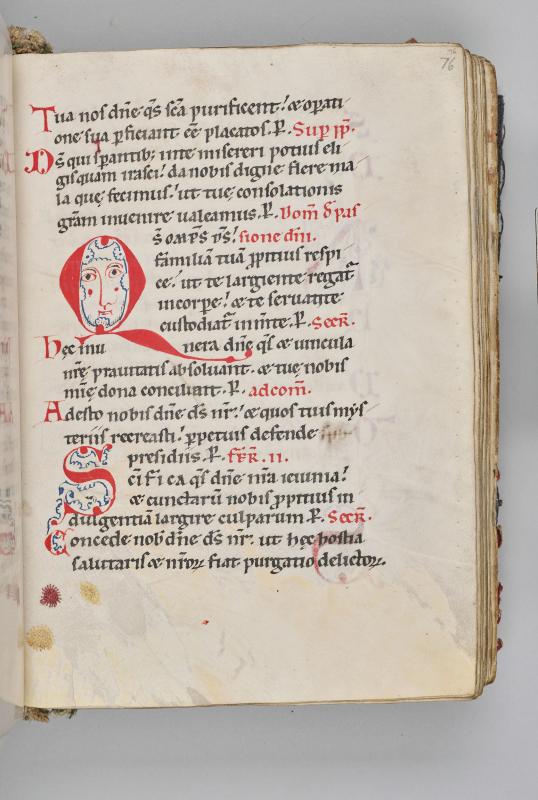 76
Tua nos dñe q̃s sc̃a purificent! & op̱ati
one sua ꝑficiant cẽ placatos. P̱. Sup̱ pp̃.
Ds̃ qui sꝑantib; inte misereri potius eli
gis quam irasci! da nobis digne flere ma
la quę fecimus! ut tuę consolationis
gr̃am inuenire ualeamus. P̱. Dom̃ d̃ pas
Q s̃ om̃ps ds̃! sione dñi.
familiã tuã ꝓpitius respi
ce! ut te largiente regat̃
in corpe! & te seruante
custodiat̃ in m̃te. P̱. Secr̃.
Hęc mu nera dñe q̃s & uincula
nr̃ę prauitatis absoluant. & tuę nobis
mĩe dona concilient. P̱. adcom̃.
Adesto nobis dñe ds̃ nr̃! & quos tuis mys
teriis recreasti! ꝑpetuis defende
presidiis. P̱. fr̃. II.
Sc̃ifica q̃s dñe nr̃a ieiunia!
& cunctarũ nobis ꝓpitius in
dulgentiã largire culparum P̱. Secr̃.
Concede nob̃ dñe ds̃ nr̃. ut hęc hostia
salutaris & nr̃oꝝ fiat purgatio delictoꝝ.